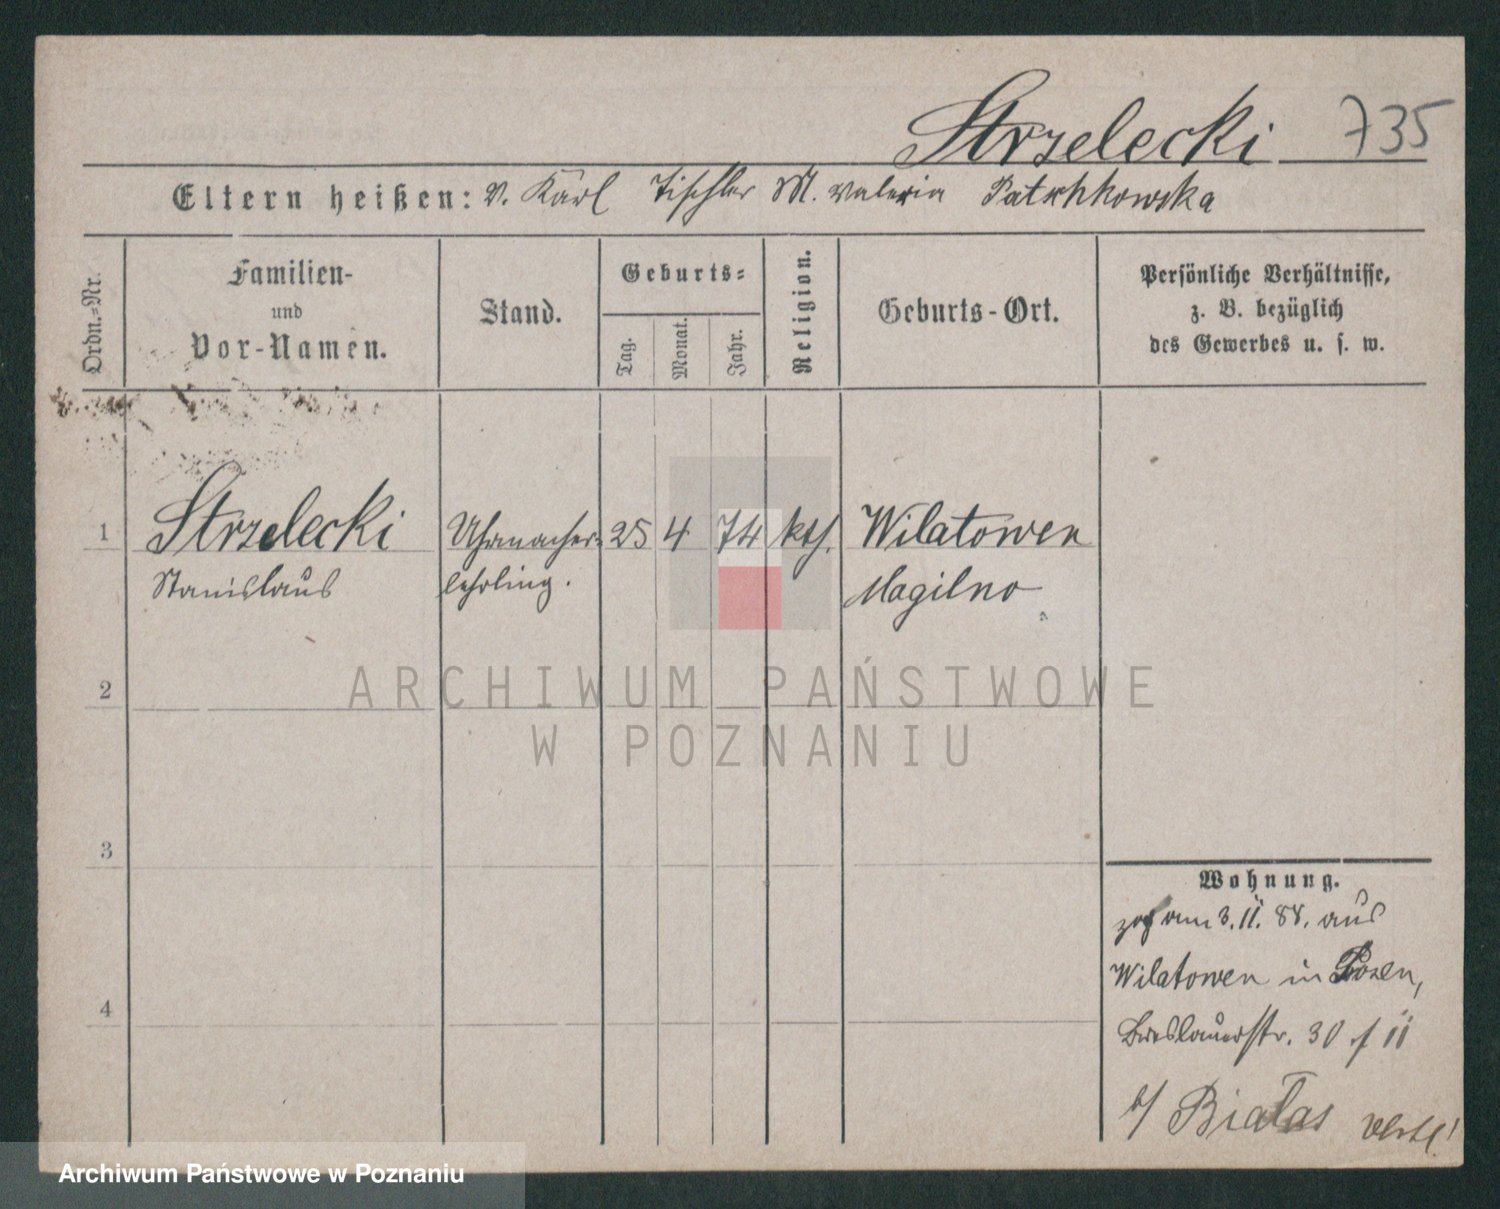 Strzelecki 735
Eltern heißen: V. Karl Tischler M. Valeria
Ordn.=Nr.
Familien-
und
Vor-Namen.
Stand.
Geburts=
Tag.
Monat.
Jahr.
Religion.
Geburts-Ort.
Persönliche Verhältnisse,
z. B. bezüglich
des Gewerbes u. s. w.
1 Strzelecki Uhrmacher= 25 4 74 kth. Wilatowen
Stanislaus lehrling. Mogilno
2
3
4
Wohnung.
zog am 3. II. 88. aus
Wilatowen in Posen,
Breslauerstr. 30 / II
b/ Białas
ARCHIWUM PAŃSTWOWE
W POZNANIU
Archiwum Państwowe w Poznaniu